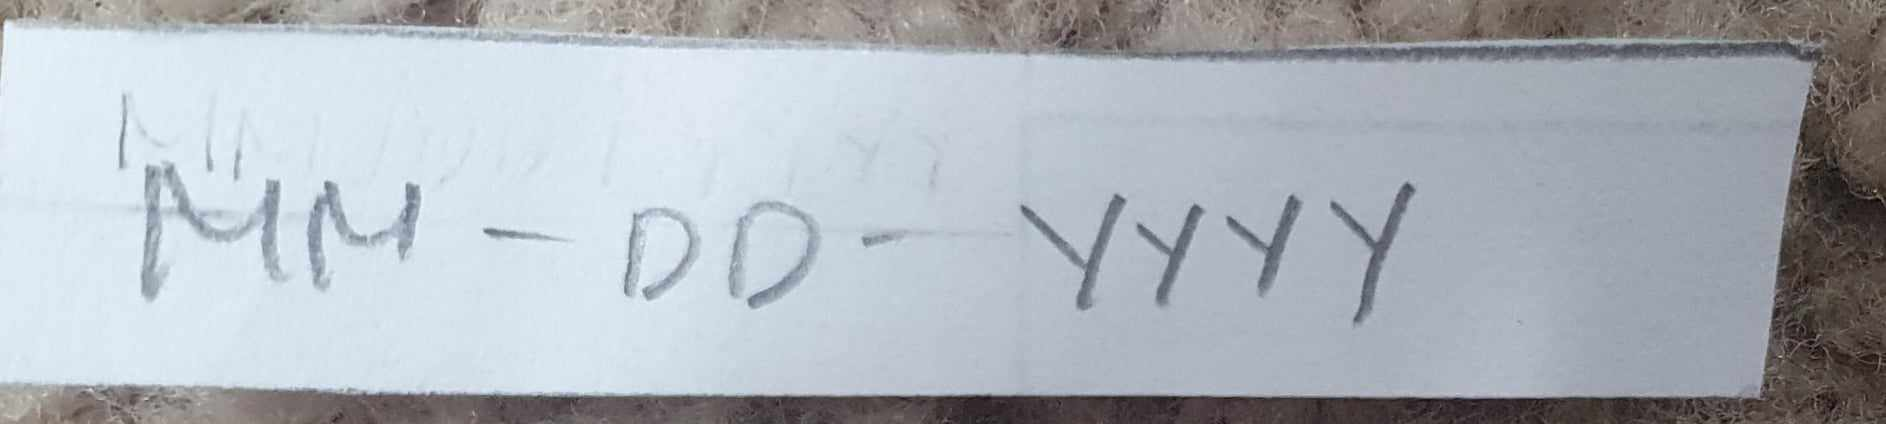 MM - DD - YYYY